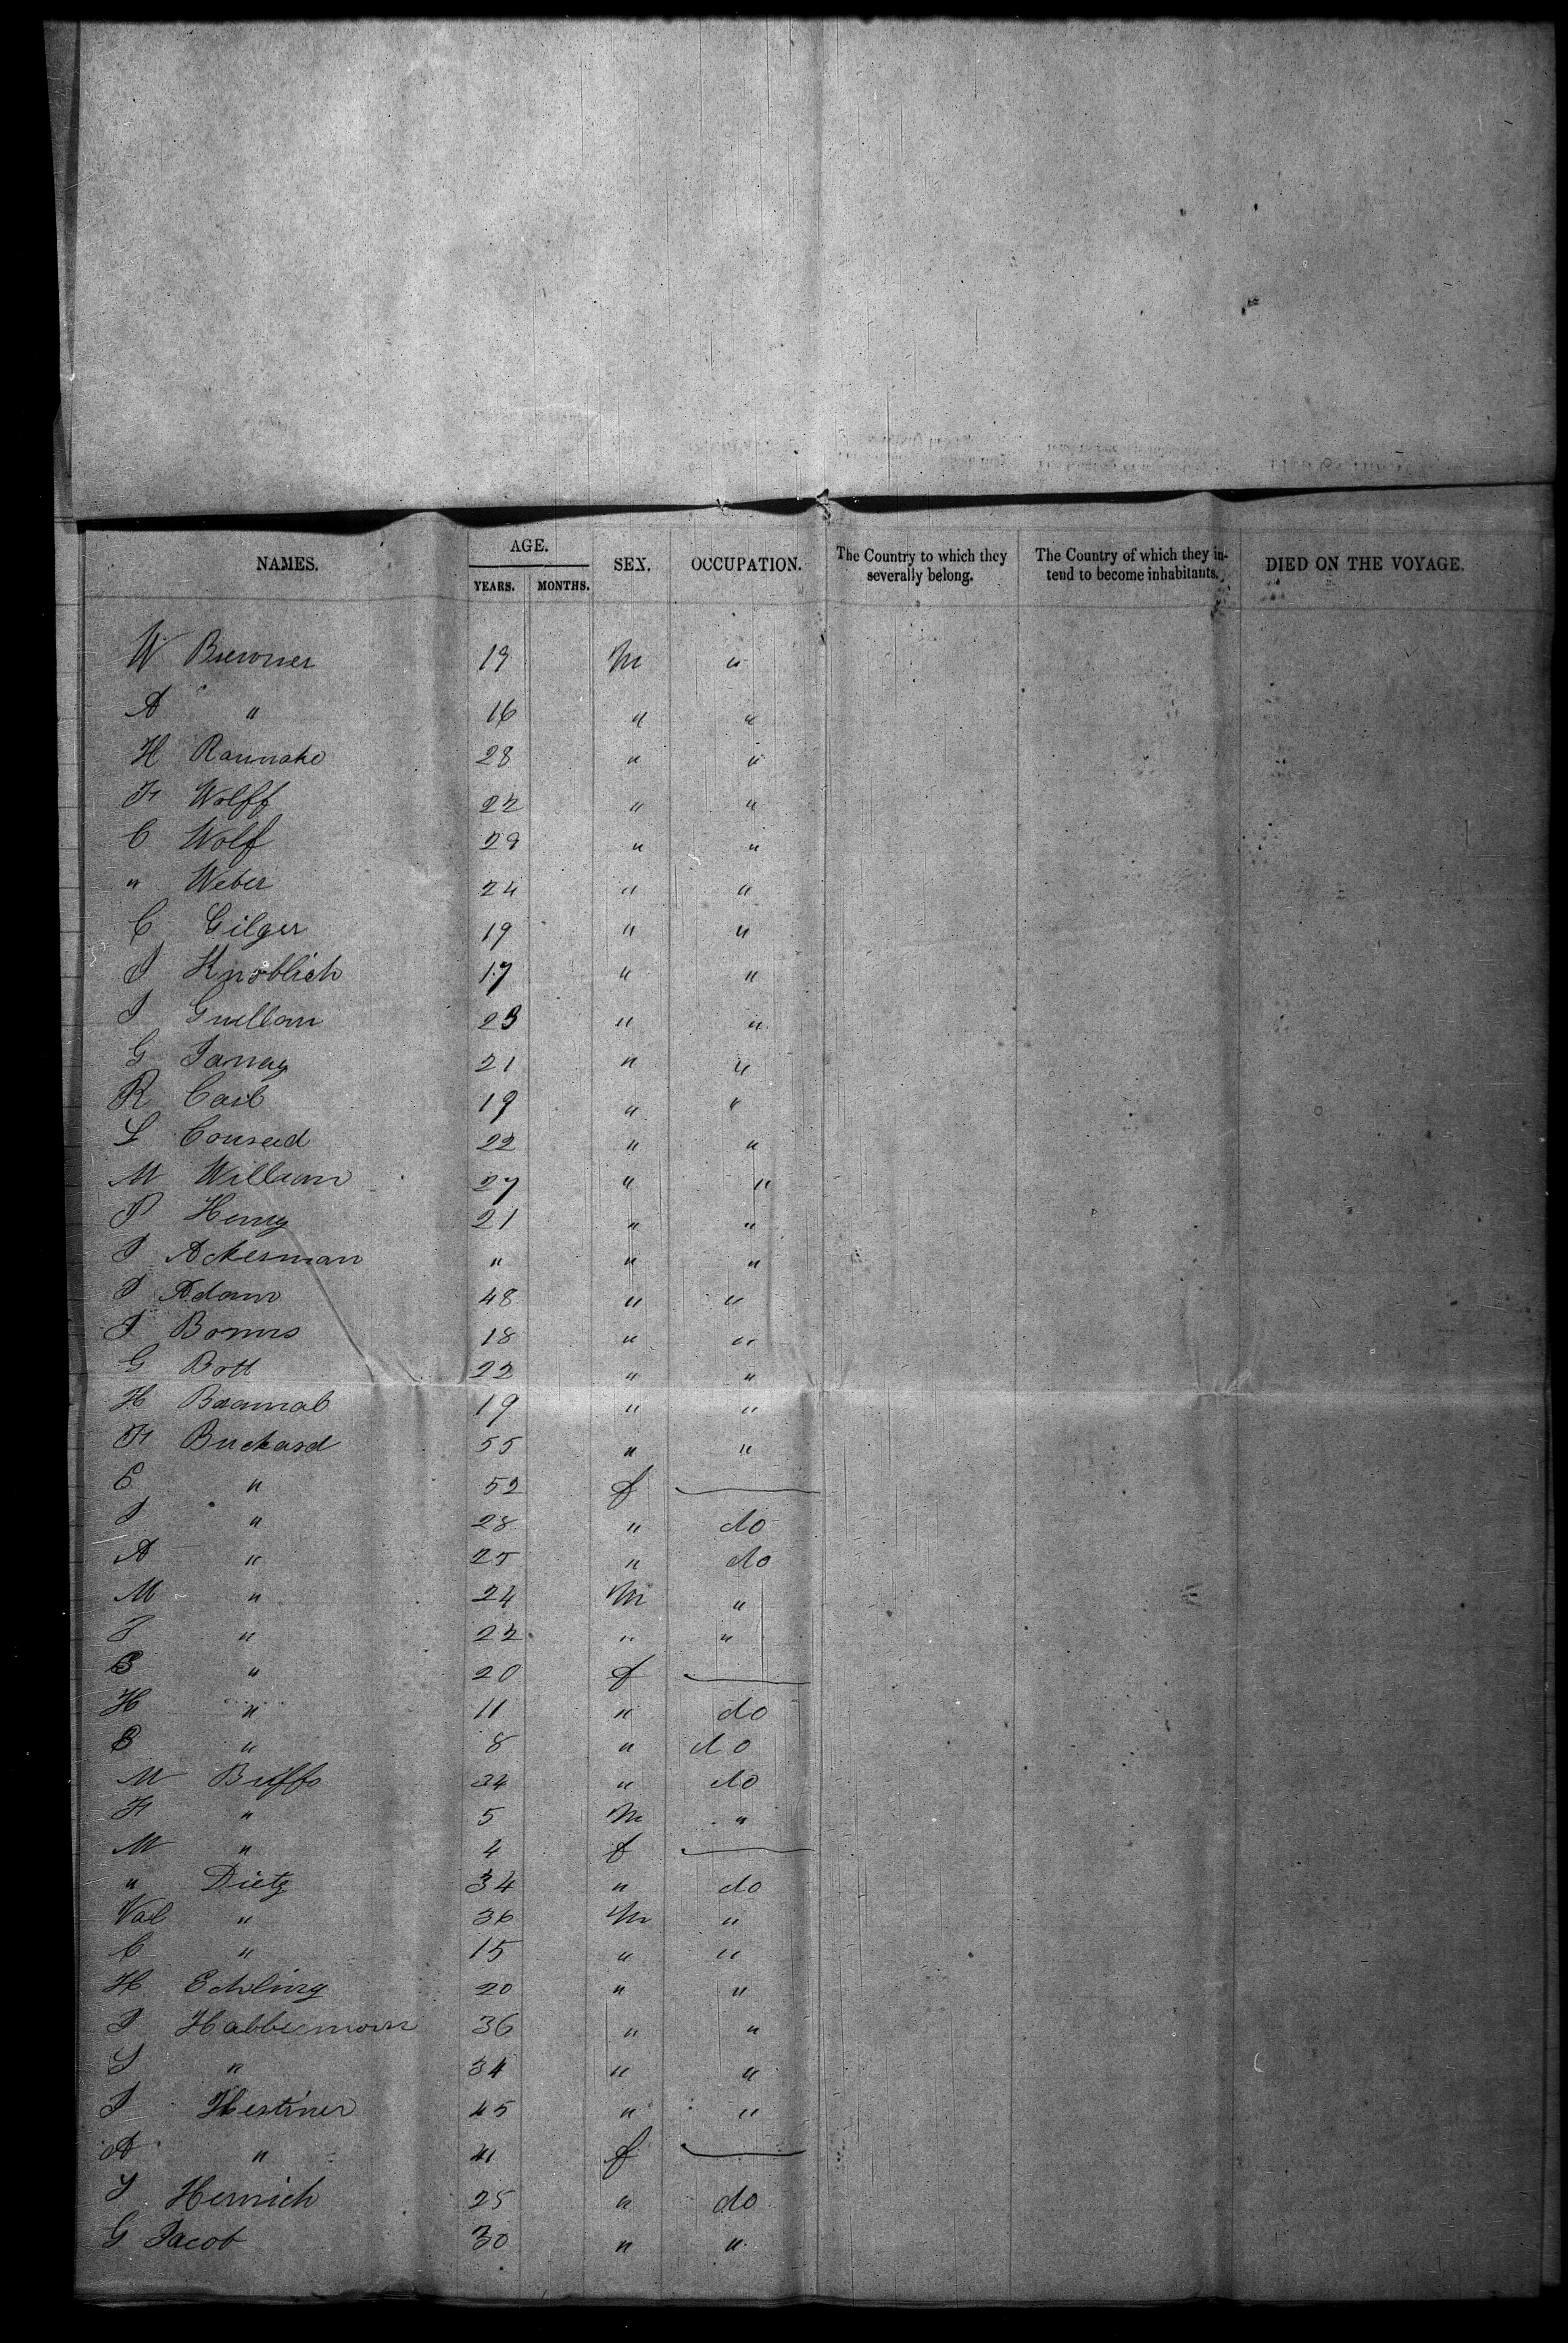 NAMES. AGE. SEX. OCCUPATION. The Country to which they severally belong. The Country of which they intend to become inhabitants. DIED ON THE VOYAGE.
YEARS. MONTHS.
W 19 M "
A " 16 " "
H 28 " "
F Wolff 22 " "
C Wolf 29 " "
" Weber 24 " "
C Gilger 19 " "
J Knoblich 17 " "
J 23 " "
G 21 " "
R Carl 19 " "
L Conrad 22 " "
M William 27 " "
P Henry 21 " "
J Ackerman " " "
J Adam 48 " "
J 18 " "
G Bott 22 " "
H 19 " "
F Buckard 55 " "
C " 52 f
J " 28 " do
A " 25 " do
M " 24 M "
J " 22 " "
B " 20 f
H " 11 " do
B " 8 " do
M 34 " do
F " 5 M "
M " 4 f
" Dietz 34 " do
Val " 36 M "
C " 15 " "
H 20 " "
J 36 " "
S " 34 " "
J 45 " "
A " 41 f
S 25 " do
G Jacob 30 " "